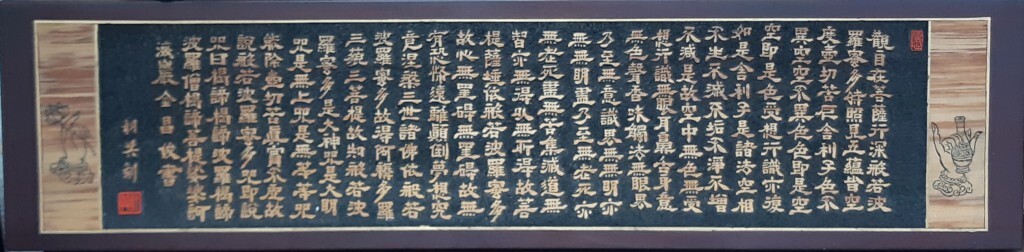 觀自在菩薩行深般若波
羅蜜多時照見五蘊皆空
度一切苦厄舍利子色不
異空空不異色色即是空
空即是色受想行識亦復
如是舍利子是諸法空相
不生不滅不垢不淨不增
不減是故空中無色無受
想行識無眼耳鼻舌身意
無色聲香味觸法無眼界
乃至無意識界無無明亦
無無明盡乃至無老死亦
無老死盡無苦集滅道無
智亦無得以無所得故菩
提薩埵依般若波羅蜜多
故心無罣碍無罣碍故無
有恐怖遠離顛倒夢想究
竟涅槃三世諸佛依般若
波羅蜜多故得阿耨多羅
三藐三菩提故知般若波
羅蜜多是大神咒是大明
咒是無上咒是無等等咒
能除一切苦真實不虛故
說般若波羅蜜多咒即說
咒曰揭諦揭諦波羅揭諦
波羅僧揭諦菩提娑婆訶
金昌俊書
刻